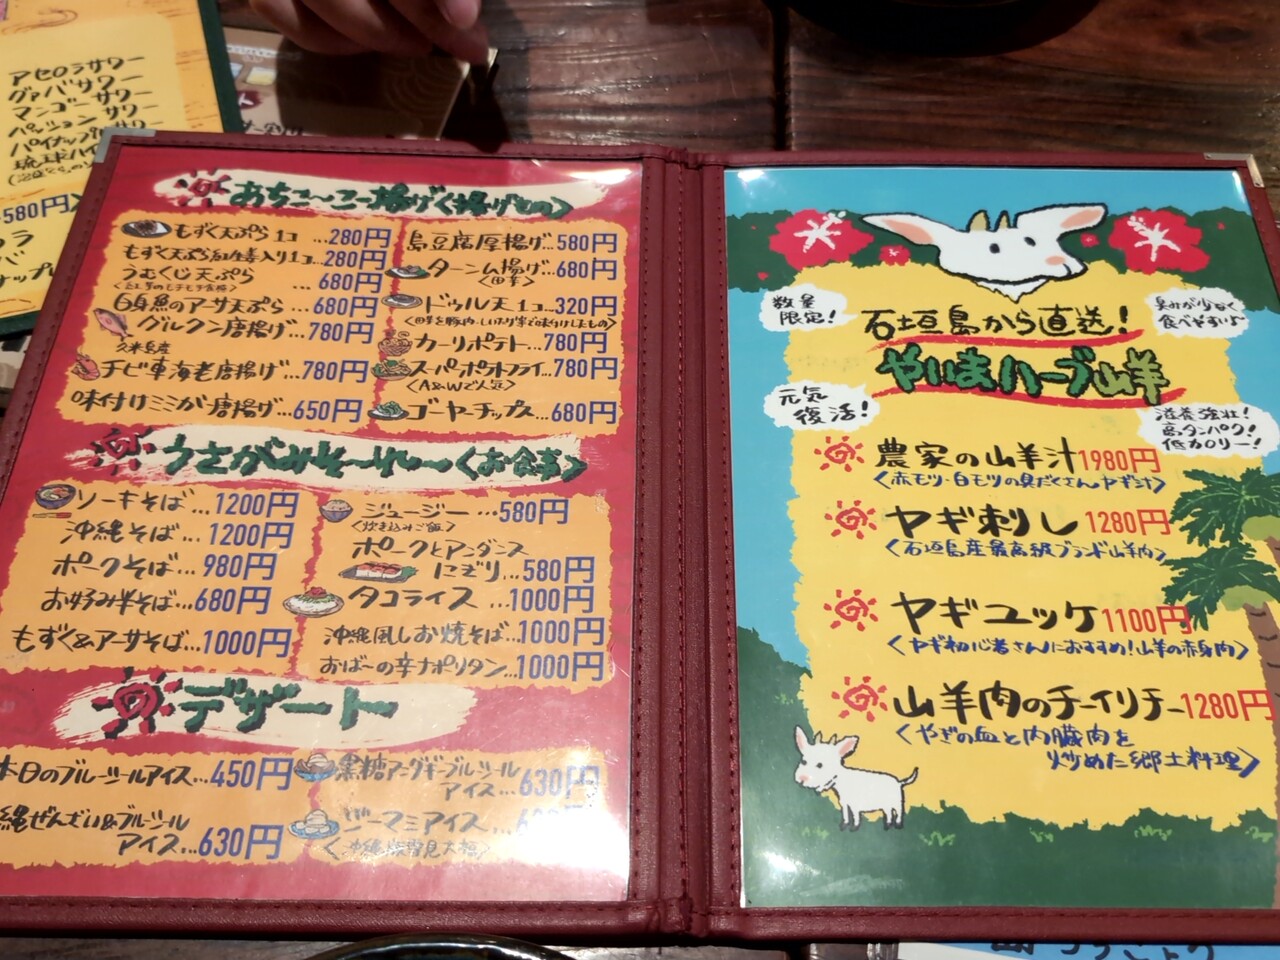 アセロラサワー
グァバサワー
マンゴーサワー
パッションサワー
580円
あちこ〜こ〜揚げ〈揚げもの〉
もずく天ぷら1コ…280円
もずく天ぷら紅生姜入り1コ…280円
うむくじ天ぷら …680円
白身魚のアーサ天ぷら…680円
グルクン唐揚げ…780円
久米島産
チビ車海老唐揚げ…780円
味付けミミガー唐揚げ…650円
島豆腐厚揚げ…580円
ターンム揚げ…680円
〈田芋〉
ドゥル天1コ…320円
カーリポテト…780円
スーパーポテトフライ…780円
〈A&Wで人気〉
ゴーヤーチップス…680円
うさがみそ〜れ〜〈お食事〉
ソーキそば…1200円
沖縄そば…1200円
ポークそば…980円
お好み半そば…680円
もずく&アーサそば…1000円
ジューシー…580円
〈炊き込みご飯〉
ポークとアンダンス
にぎり…580円
タコライス…1000円
沖縄風しお焼そば…1000円
おば〜の辛ナポリタン…1000円
デザート
本日のブルーシールアイス…450円
縄ぜんざい&ブルーシール
アイス…630円
黒糖アンダギーブルーシール
アイス…630円
ジーマミアイス…
数量
限定!
臭みが少なく
食べやすいよ
石垣島から直送!
やいまハーブ山羊
元気
復活!
滋養強壮!
高タンパク!
低カロリー!
農家の山羊汁1980円
〈赤モツ・白モツの具だくさんヤギ汁〉
ヤギ刺し 1280円
〈石垣島産最高級ブランド山羊肉〉
ヤギユッケ 1100円
〈ヤギ初心者さんにおすすめ!山羊の赤身肉〉
山羊肉のチーイリチー1280円
〈やぎの血と内臓肉を
炒めた郷土料理〉